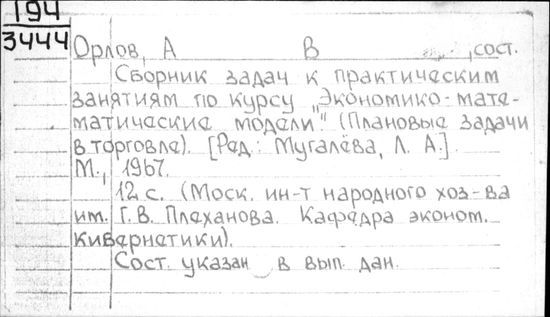 194
3444
Орлов, А В , сост.
Сборник задач к практическим
занятиям по курсу „Экономико-мате-
матические модели" (Плановые задачи
в торговле). [Ред: Мугалёва, Л. А.].
М., 1967.
12 с. (Моск. ин-т народного хоз-ва
им. Г. В. Плеханова. Кафедра эконом.
кибернетики).
Сост. указан в вып. дан.